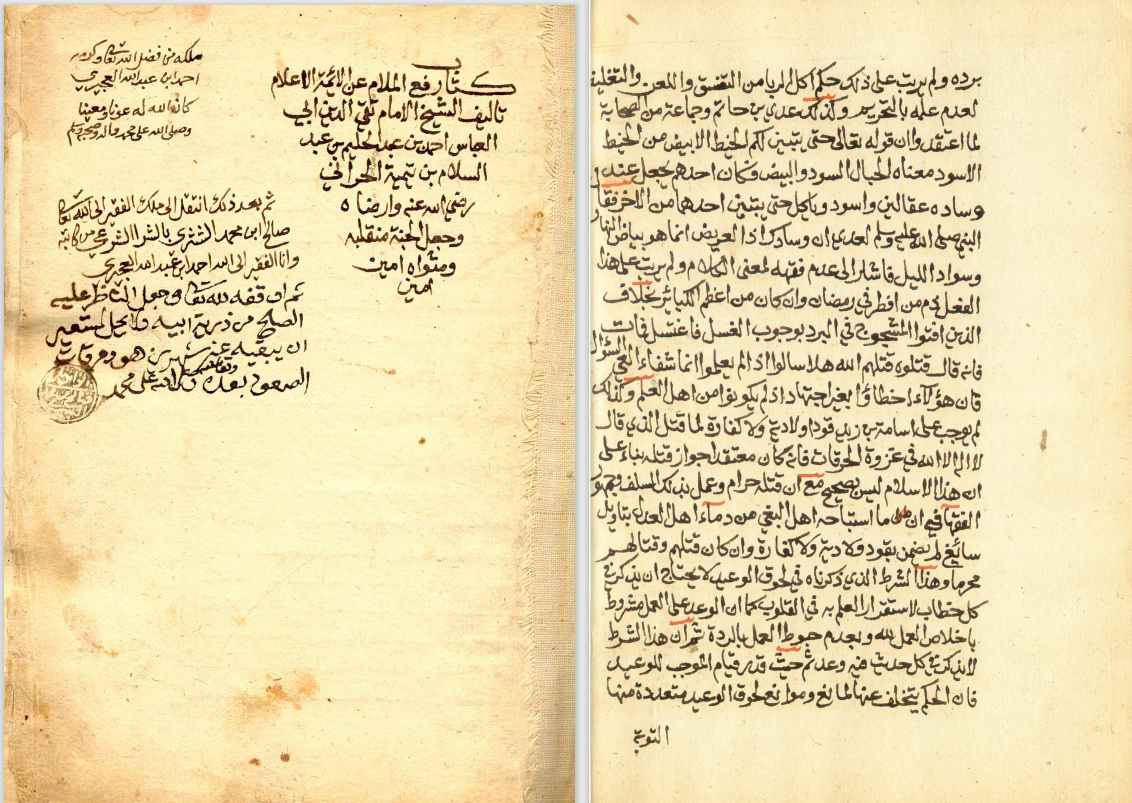 كتاب رفع الملام عن الائمة الاعلام
تاليف الشيخ الامام تقي الدين ابي
العباس احمد بن عبد الحليم بن عبد
السلام بن تيمية الحراني
رضي الله عنه وارضاه
وجعل الجنة منقلبه
ومثواه امين
امين
ملكه من فضل الله تعالى وكرمه
احمد ابن عبد الله العجيري
كان الله له عونا ومعينا
وصلى الله على محمد واله وصحبه وسلم
ثم بعد ذلك انتقل الى ملك الفقير الى الله تعالى
صالح ابن محمد الشثري بالشرا الشرعي من كاتبه
وانا الفقير الى الله احمد ابن عبد الله العجيري
ثم اوقفه لله تعالى وجعل الناظر عليه
الصالح من ذرية ابيه ولا يحل لمستعير
ان يبقيه عنده شهرين
برده ولم يرتب على ذلك حكم اكل الربا من التفسيق واللعن والتغليظ
لعدم علمه بالتحريم وكذلك عدي بن حاتم وجماعة من الصحابة
لما اعتقدوا ان قوله تعالى حتى يتبين لكم الخيط الابيض من الخيط
الاسود معناه الحبال السود والبيض فكان احدهم يجعل عند
وساده عقالين واسود وياكل حتى يتبين احدهما من الاخر فقال
النبي صلى الله عليه وسلم لعدي ان وسادك اذا لعريض انما هو بياض النهار
وسواد الليل فاشار الى عدم فقهه لمعنى الكلام ولم يرتب على هذا
الفعل ذم من افطر في رمضان وان كان من اعظم الكبائر بخلاف
الذين افتوا المشجوج في البرد بوجوب الغسل فاغتسل فمات
فانه قال قتلوه قتلهم الله هلا سالوا اذا لم يعلموا انما شفاء العي السؤال
فان هؤلاء اخطاؤا بغير اجتهاد اذ لم يكونوا من اهل العلم وكذلك
لم يوجب على اسامة بن زيد قودا ولا دية ولا كفارة لما قتل الذي قال
لا اله الا الله في غزوة الحرقات فانه كان معتقدا جواز قتله بناء على
ان هذا الاسلام ليس بصحيح مع ان قتله حرام وعمل بذلك السلف وجمهور
الفقها في ان ما استباحه اهل البغي من دماء اهل العدل بتاويل
سائغ لم يضمن بقود ولا دية ولا كفارة وان كان قتلهم وقتالهم
محرما وهذا الشرط الذي ذكرناه في لحوق الوعيد لا يحتاج ان يذكر في
كل خطاب لاستقرار العلم به في القلوب كما ان الوعد على العمل مشروط
باخلاص العمل لله وبعدم حبوط العمل بالردة ثم ان هذا الشرط
لا يذكر في كل حديث فيه وعد ثم حيث قدر قيام الموجب للوعيد
فان الحكم يتخلف عنها لمانع وموانع لحوق الوعيد متعددة منها
التوبة